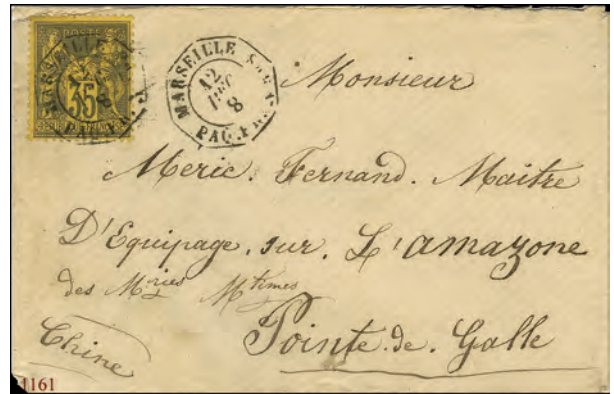 POSTE
35
MARSEILLE
12
DEC
8
PAQ. FR.
Monsieur
Meric. Fernand. Maitre
D'Equipage. sur. L'amazone
des Mries Mtimes
Pointe. de. Galle
Chine
1161